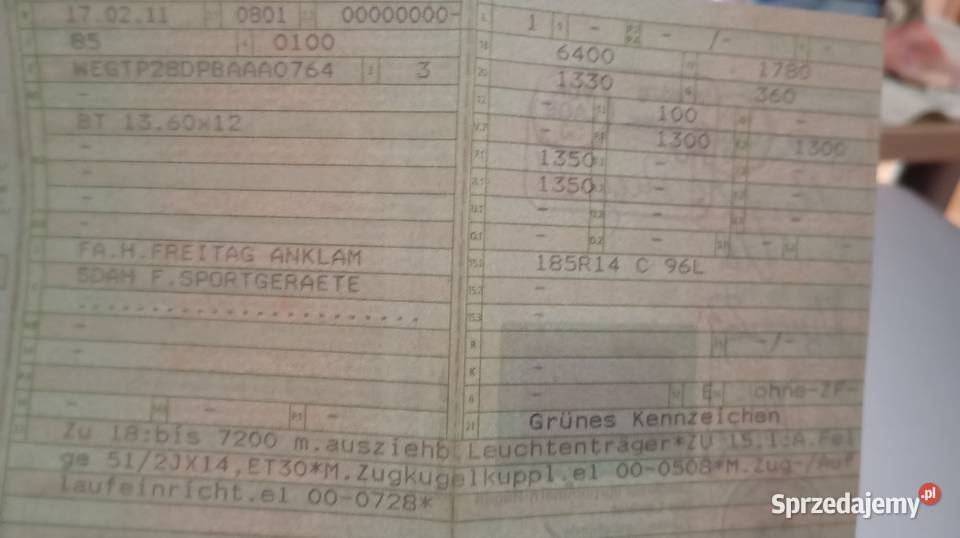 17.02.11 0801 00000000-
85 0100
WEGTP28DPBAAA0764 3
-
BT 13.60x12
-
-
-
-
FA.H.FREITAG ANKLAM
SDAH F.SPORTGERAETE
.......................
-
-
- - -
L 1 9 - - /- -
18 6400 1780
20 1330 360
12 - 100 -
- 1300 1300
1350 - -
1350 - -
- - -
- - - -
15.1 185R14 C 96L
15.2 -
15.3 -
R -/-
K -
6 - E ohne-ZF-
21 Grünes Kennzeichen
Zu 18:bis 7200 m.ausziehb.Leuchtenträger*ZU 15.1:A.Fel
ge 51/2JX14,ET30*M.Zugkugelkuppl.el 00-0508*M.Zug-/Auf
laufeinricht.el 00-0728*
Sprzedajemy.pl